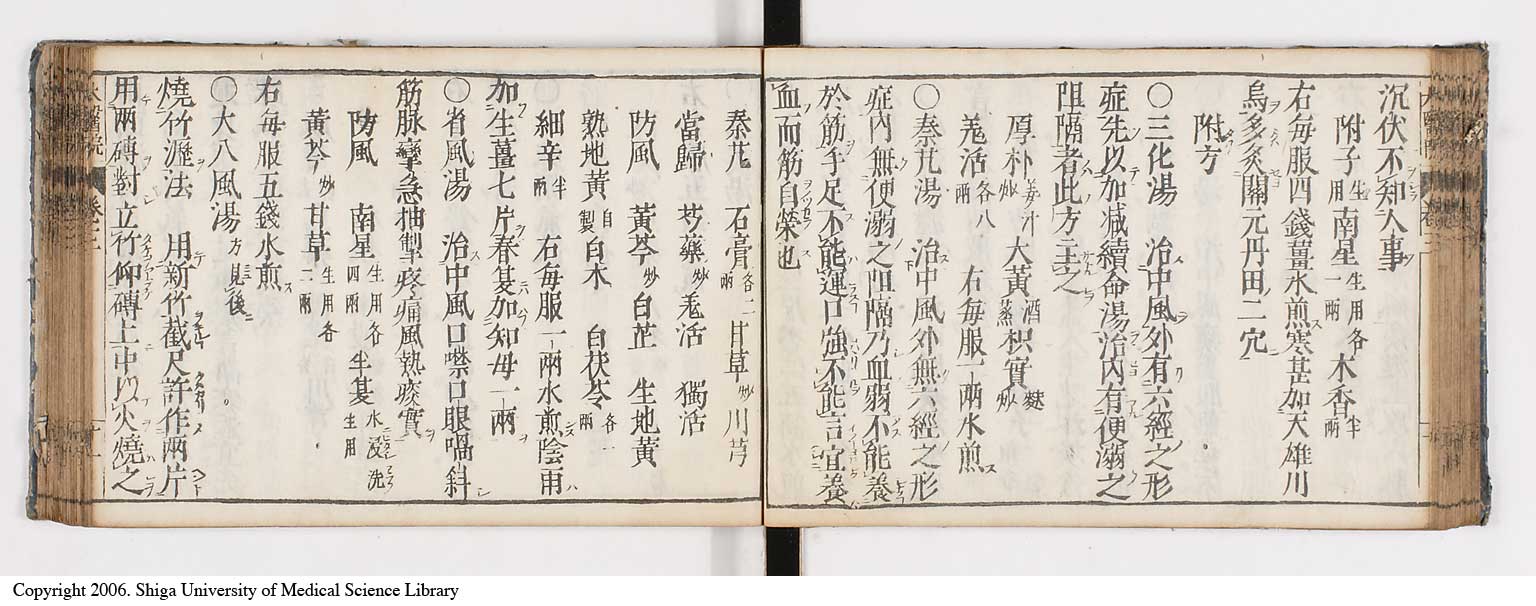 沉伏不知人事
附子生用南星生用各一兩木香半兩
右毎服四錢薑水煎寒甚加天雄川
烏多灸關元丹田二穴
附方
○三化湯 治中風外有六經之形
症先以加减續命湯治内有便溺之
阻隔者此方主之
厚朴姜汁炒大黃酒蒸枳實麸炒
羗活各八兩 右毎服一兩水煎
○秦芁湯 治中風外無六經之形
症内無便溺之阻隔乃血弱不能養
於筋手足不能運口強不能言宜養
血而筋自榮也
秦芁 石膏各二兩甘草炒川芎
當歸 芍藥炒羗活 獨活
防風 黃芩炒白芷 生地黃
熟地黃自製白朮 白茯苓各一兩
細辛半兩 右毎服一兩水煎陰雨
加生薑七片春夏加知母一兩
○省風湯 治中風口噤口眼喎斜
筋脉攣急抽掣疼痛風熱痰實
防風 南星生用各四兩 半夏水浸洗生用
黃芩炒 甘草生用各二兩
右毎服五錢水煎
○大八風湯方見後
燒竹瀝法 用新竹截尺許作兩片
用兩磚對立竹仰磚上中以火燒之
Copyright 2006. Shiga University of Medical Science Library